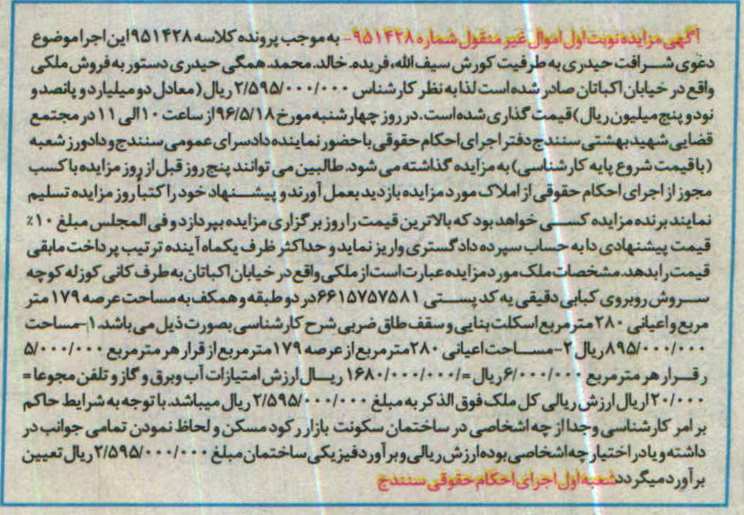 آگهی مزایده نوبت اول اموال غیر منقول شماره ۹۵۱۴۲۸- به موجب پرونده کلاسه ۹۵۱۴۲۸ این اجرا موضوع
دعوی شرافت حیدری به طرفیت کورش سیف الله، فریده، خالد، محمد، همگی حیدری دستور به فروش ملکی
واقع در خیابان اکباتان صادر شده است لذا به نظر کارشناس ۲/۵۹۵/۰۰۰/۰۰۰ ریال (معادل دو میلیارد و پانصد و
نود و پنج میلیون ریال) قیمت گذاری شده است. در روز چهارشنبه مورخ ۹۶/۵/۱۸ از ساعت ۱۰ الی ۱۱ در مجتمع
قضایی شهید بهشتی سنندج دفتر اجرای احکام حقوقی با حضور نماینده دادسرای عمومی سنندج و دادورز شعبه
(با قیمت شروع پایه کارشناسی) به مزایده گذاشته می شود. طالبین می توانند پنج روز قبل از روز مزایده با کسب
مجوز از اجرای احکام حقوقی از املاک مورد مزایده بازدید بعمل آورند و پیشنهاد خود را کتباً روز مزایده تسلیم
نمایند برنده مزایده کسی خواهد بود که بالاترین قیمت را روز برگزاری مزایده بپردازد و فی المجلس مبلغ ۱۰٪
قیمت پیشنهادی دا به حساب سپرده دادگستری واریز نماید و حداکثر ظرف یکماه آینده ترتیب پرداخت مابقی
قیمت را بدهد. مشخصات ملک مورد مزایده عبارت است از ملکی واقع در خیابان اکباتان به طرف کانی کوزله کوچه
سروش روبروی کبابی دقیقی به کد پستی ۶۶۱۵۷۵۷۵۸۱ در دو طبقه و همکف به مساحت عرصه ۱۷۹ متر
مربع و اعیانی ۲۸۰ متر مربع اسکلت بنایی و سقف طاق ضربی شرح کارشناسی بصورت ذیل می باشد. ۱-مساحت
۸۹۵/۰۰۰/۰۰۰ ریال ۲-مساحت اعیانی ۲۸۰ متر مربع از عرصه ۱۷۹ متر مربع از قرار هر متر مربع ۵/۰۰۰/۰۰۰
ر قرار هر متر مربع ۶/۰۰۰/۰۰۰ ریال =/۱۶۸۰/۰۰۰/۰۰۰ ریال ارزش امتیازات آب و برق و گاز و تلفن مجوعا=
۲۰/۰۰۰ اریال ارزش ریالی کل ملک فوق الذکر به مبلغ ۲/۵۹۵/۰۰۰/۰۰۰ ریال میباشد. با توجه به شرایط حاکم
بر امر کارشناسی وجدا از چه اشخاصی در ساختمان سکونت بازار رکود مسکن و لحاظ نمودن تمامی جوانب در
داشته و یا در اختیار چه اشخاصی بوده ارزش ریالی و برآورد فیزیکی ساختمان مبلغ ۲/۵۹۵/۰۰۰/۰۰۰ ریال تعیین
برآورد میگردد شعبه اول اجرای احکام حقوقی سنندج